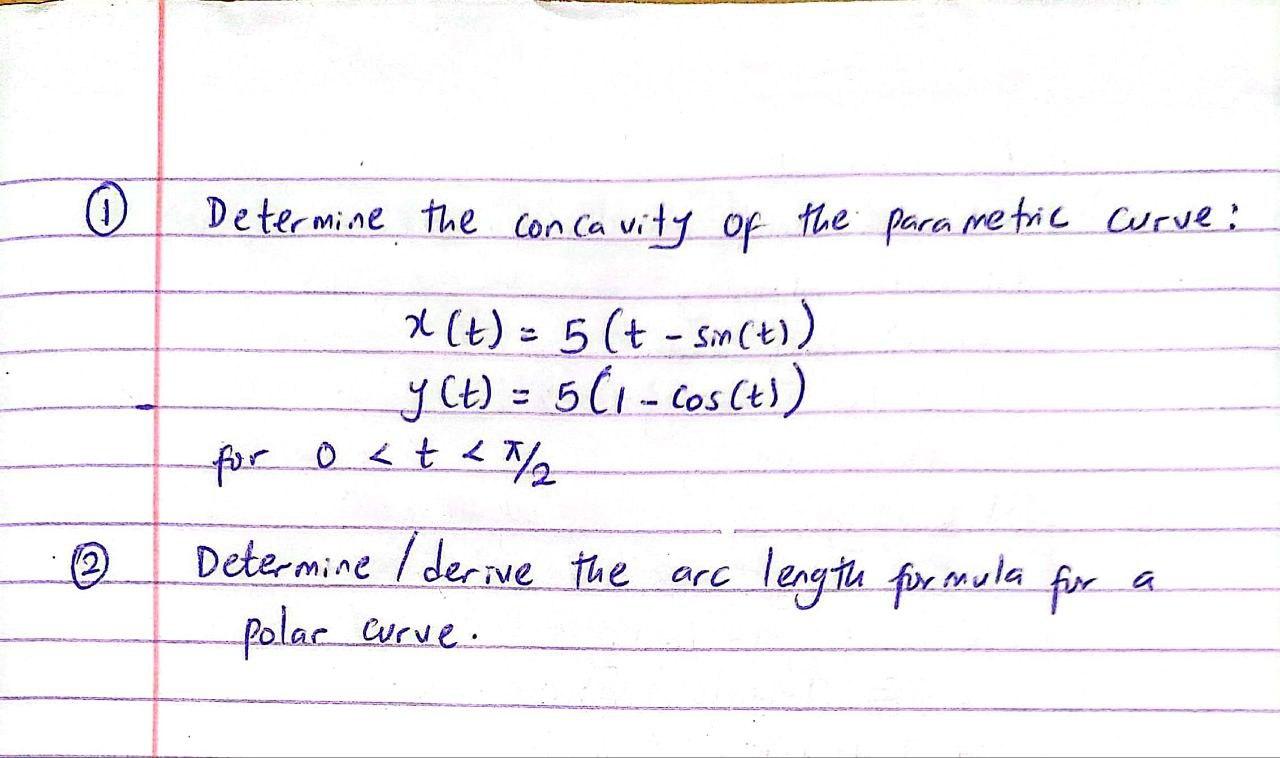 ① Determine the concavity of the parametric curve:
x(t) = 5(t - sin(t))
y(t) = 5(1 - cos(t))
for 0 < t < π/2
② Determine / derive the arc length formula for a
polar curve.